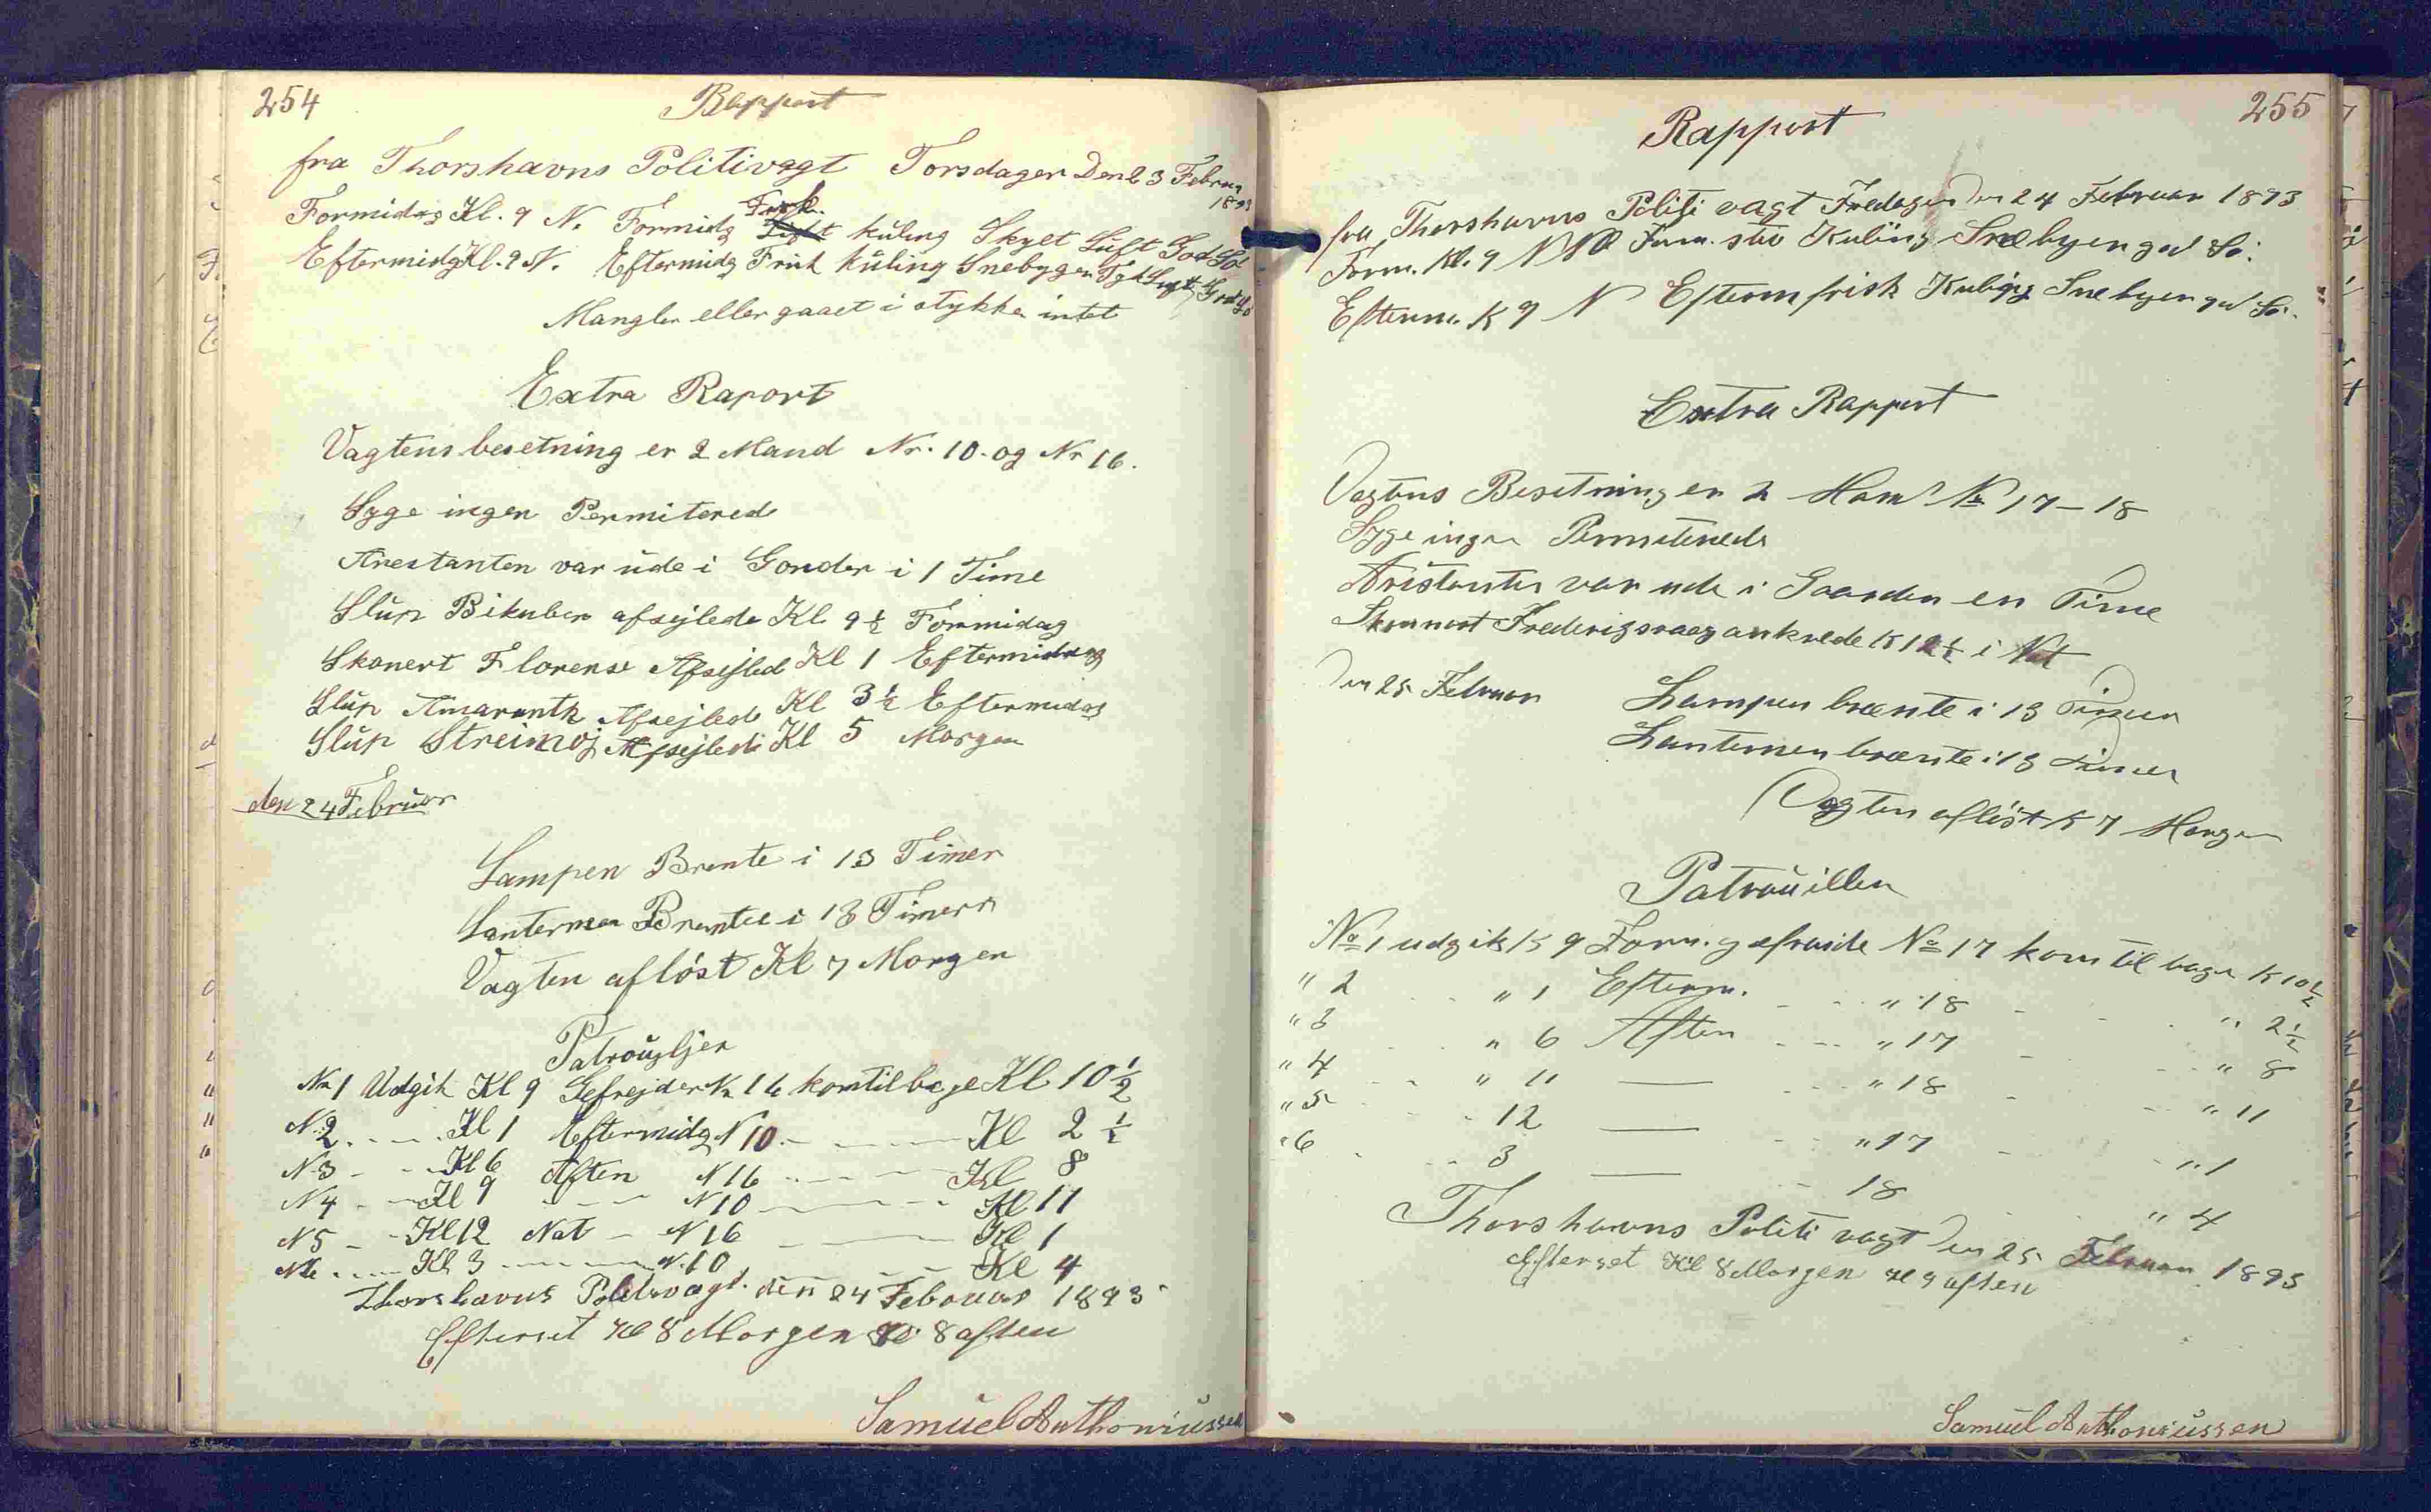 254
Rapport
fra Thorshavns Politivagt Torsdagen Den 23 Februar 1893
Formidag Kl. 9 N. Formidg Frisk. kuling Skyet Luft God Sø
Eftermidg Kl. 9 N. Eftermidg Frisk kuling Snebygen Tyk Luft God Sø
Mangler eller gaaet i stykke intet
Extra Raport
Vagtens besetning er 2 Mand Nr. 10. og Nr 16.
Syge ingen Permitered
Arestanten var ude i Gonder i 1 Time
Slup Bikuben afsejlede Kl 9½ Formidag
Skonert Florense Afsejled Kl 1 Eftermidag
Slup Amaranth Afsejlede Kl 3½ Eftermidag
Slup Streimoj Afsejlede Kl 5 Morgen
den 24 Februar
Lampen Brente i 13 Timer
Lanternen Brente i 13 Timer
Vagten afløst Kl 7 Morgen
Patrouljer
No 1 Udgik Kl 9 Gefrejder No 16 kom tilbage Kl 10½
N.2 Kl 1 Eftermidg N 10 Kl 2½
N 3 Kl 6 Aften N 16 Kl 8
N 4 Kl 9 N 10 Kl 11
N 5 Kl 12 Nat N 16 Kl 1
N 6 Kl 3 N. 10 Kl 4
Thorshavns Politivagt. den 24 Februar 1893
Efterset Kl 8 Morgen Kl 8 aften
Samuel Anthoniussen
255
Rapport
fra Thorshavns Politi vagt Fredagen Den 24 Februar 1893
Form. Kl. 9 NNO Form. stiv Kuling Snebyen god Sø.
Efterm. K 9 N Efterm frisk Kuling Snebyer god Sø.
Extra Rapport
Vagtens Besetning er 2 Mand No 17 - 18
Syge ingen Permiterede
Aristanten var ude i Gaarden en Time
Skonnert Frederigsvaag ankrede K 12½ i Nat
Den 25 Februar
Lampen brænte i 13 Timer
Lanternen brænte i 13 Timer
Vagten afløst K 7 Morgen
Patrouillen
No 1 udgik K 9 Form. gefreide No 17 kom til bage K 10½
" 2 " 1 Efterm. " 18 " 2½
" 3 " 6 Aften " 17 " 8
" 4 " 11 — " 18 " 11
" 5 12 — " 17 " 1
" 6 3 — 18 " 4
Thorshavns Politi vagt Den 25 Februar 1893
Efterset Kl 8 Morgen Kl 9 aften
Samuel Anthoniussen